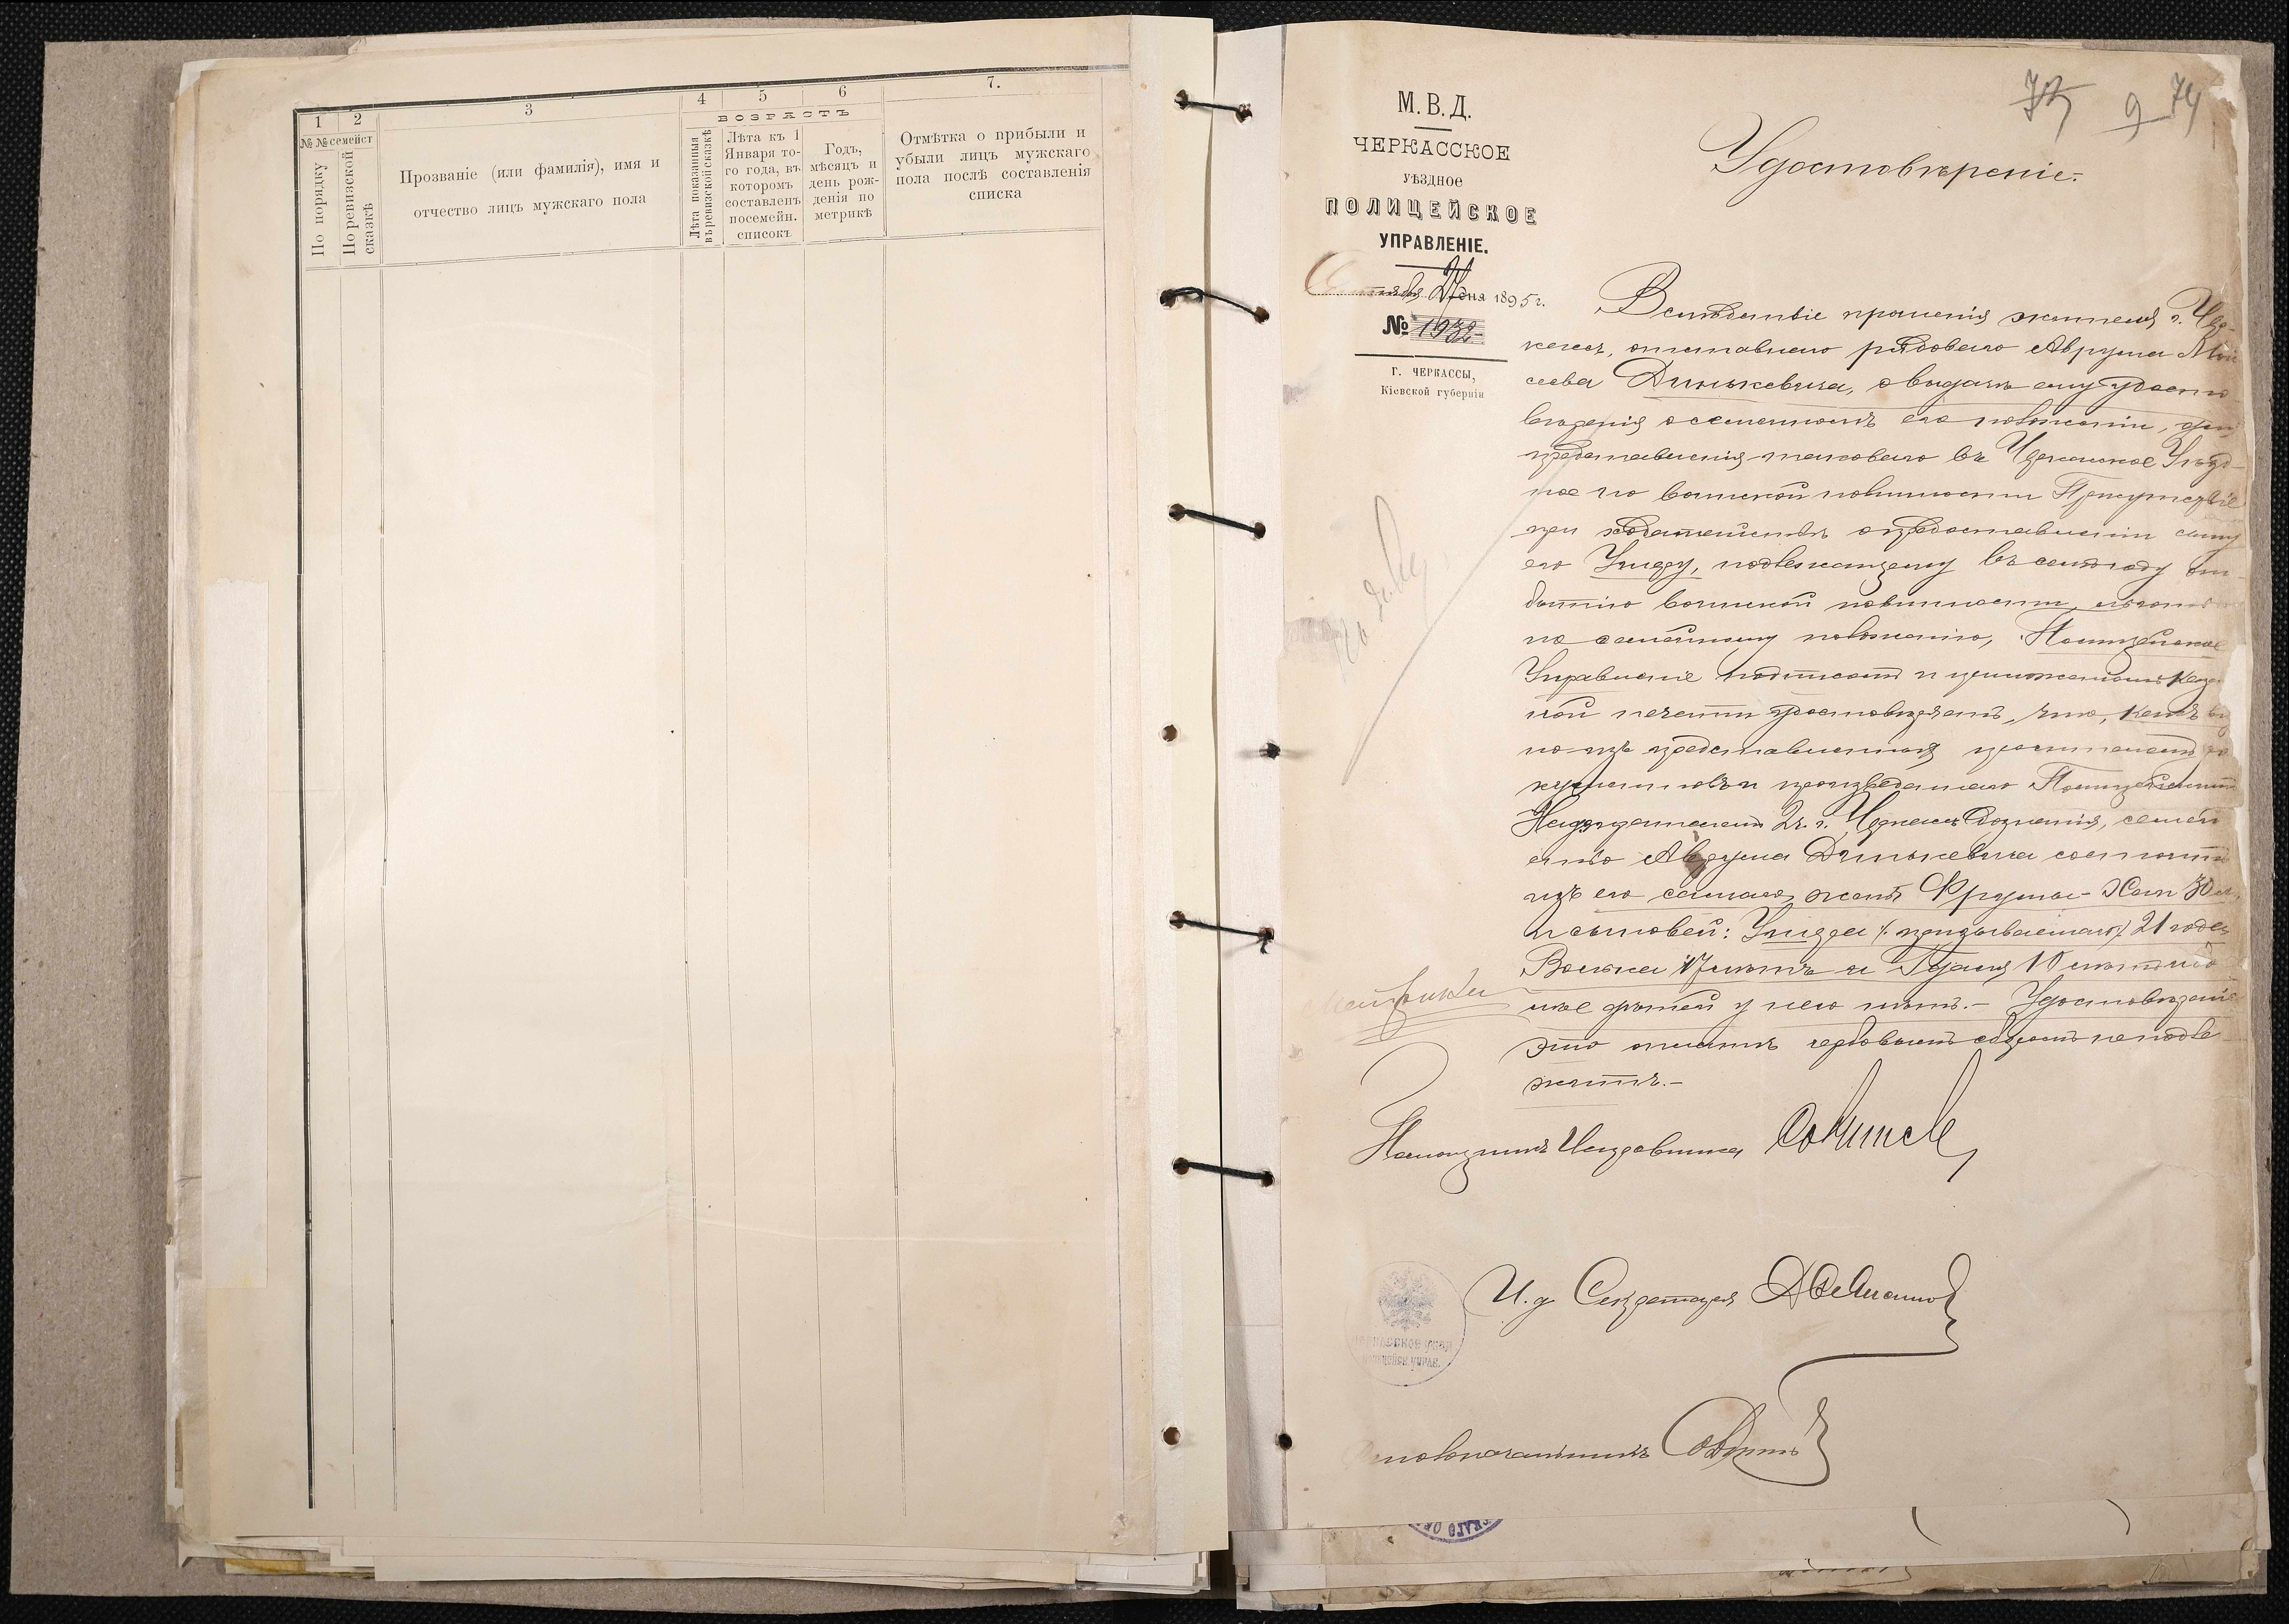 1
2
3
4
5
6
7.
№ № семейст
По порядку
По ревизской
сказкѣ
Прозваніе (или фамилія), имя и
отчество лицъ мужскаго пола
Лѣта показанныя
въ ревизской сказкѣ
ВОЗРАСТЪ
Лѣта къ 1
Января то-
го года, въ
которомъ
составленъ
посемейн.
списокъ
Годъ,
мѣсяцъ и
день рож-
денія по
метрикѣ
Отмѣтка о прибыли и
убыли лицъ мужскаго
пола послѣ составленія
списка
9 74
М. В. Д.
ЧЕРКАССКОЕ
УѢЗДНОЕ
ПОЛИЦЕЙСКОЕ
УПРАВЛЕНІЕ.
дня 1895 г.
№ 1932
Г. ЧЕРКАССЫ,
Кіевской губерніи
Удостовѣреніе.
Вслѣдствіе прошенія жителя г. Чер-
кассъ, отставного рядового Аврума Мой
сеева Динькевича, о выдачѣ ему удосто
вѣренія о семейномъ его положеніи, для
представленія таковаго въ Черкасское Уѣзд-
ное по воинской повинности Присутствіе
при ходатайствѣ о предоставленіи сыну
его Ушеру, подлежащему въ семъ году от-
бытію воинской повинности, льготы
по семейному положенію, Полицейское
Управленіе подписомъ и приложеніемъ казен
ной печати удостовѣряетъ, что, какъ вид
но изъ представленныхъ просителемъ до
кументовъ и произведеннаго Полицейскимъ
Надзирателемъ 2 ч. г. Черкассъ дознанія, семей
ство Аврума Динькевича состоитъ
изъ его самаго, жены Фрумы-Хаи 50 л.
и сыновей: Ушера (призываемаго) 21 года
Волька 17 лѣтъ и 10 лѣтъ, бо
лѣе дѣтей у него нѣтъ.- Удостовѣреніе
это оплатѣ гербовымъ сборомъ не подле
житъ.-
Помощникъ Исправника
И. д. Секретаря
Столоначальникъ